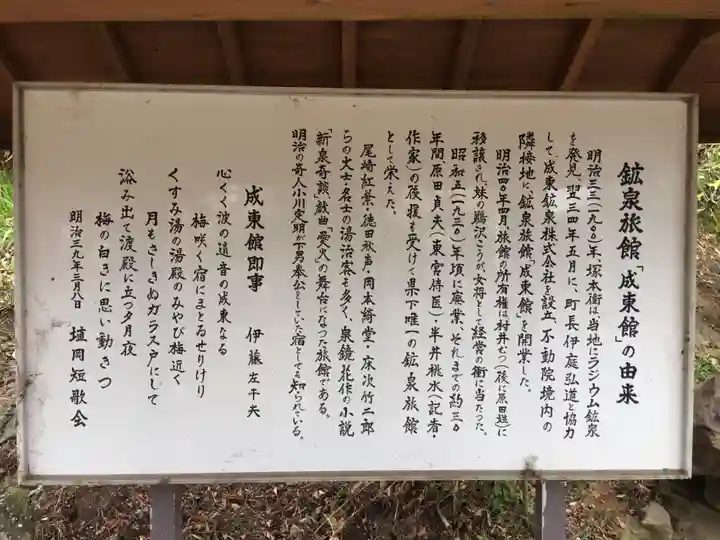 鉱泉旅館「成東館」の由来
明治三三(一九〇〇)年、塚本衛は当地にラジウム鉱泉
を発見、翌三四年五月に、町長伊庭弘道と協力
して、成東鉱泉株式会社を設立、不動院境内の
隣接地に、鉱泉旅館「成東館」を開業した。
明治四〇年四月、旅館の所有権は村井むつ(後に原田姓)に
移譲され、妹の鵜沢こうが女将として経営の衝に当たった。
昭和五(一九三〇)年頃に廃業、それまでの約三〇
年間、原田貞夫(東宮侍医)・半井桃水(記者・
作家)の後援も受けて県下唯一の鉱泉旅館
として栄えた。
尾崎紅葉・徳田秋声・岡本綺堂・床次竹二郎
らの文士・名士の湯治客も多く、泉鏡花作の小説
「新泉奇談」戯曲「愛火」の舞台になった旅館である。
明治の奇人小川定明が下男奉公をしていた宿としても知られている。
成東館即事 伊藤左千夫
心くく波の遠音の成東なる
梅咲く宿にまとゐせりけり
くすみ湯の湯殿のみやび梅近く
月もさしきぬガラス戸にして
浴み出て渡殿に立つ夕月夜
梅の白きに思い動きつ
明治三九年三月八日 埴岡短歌会